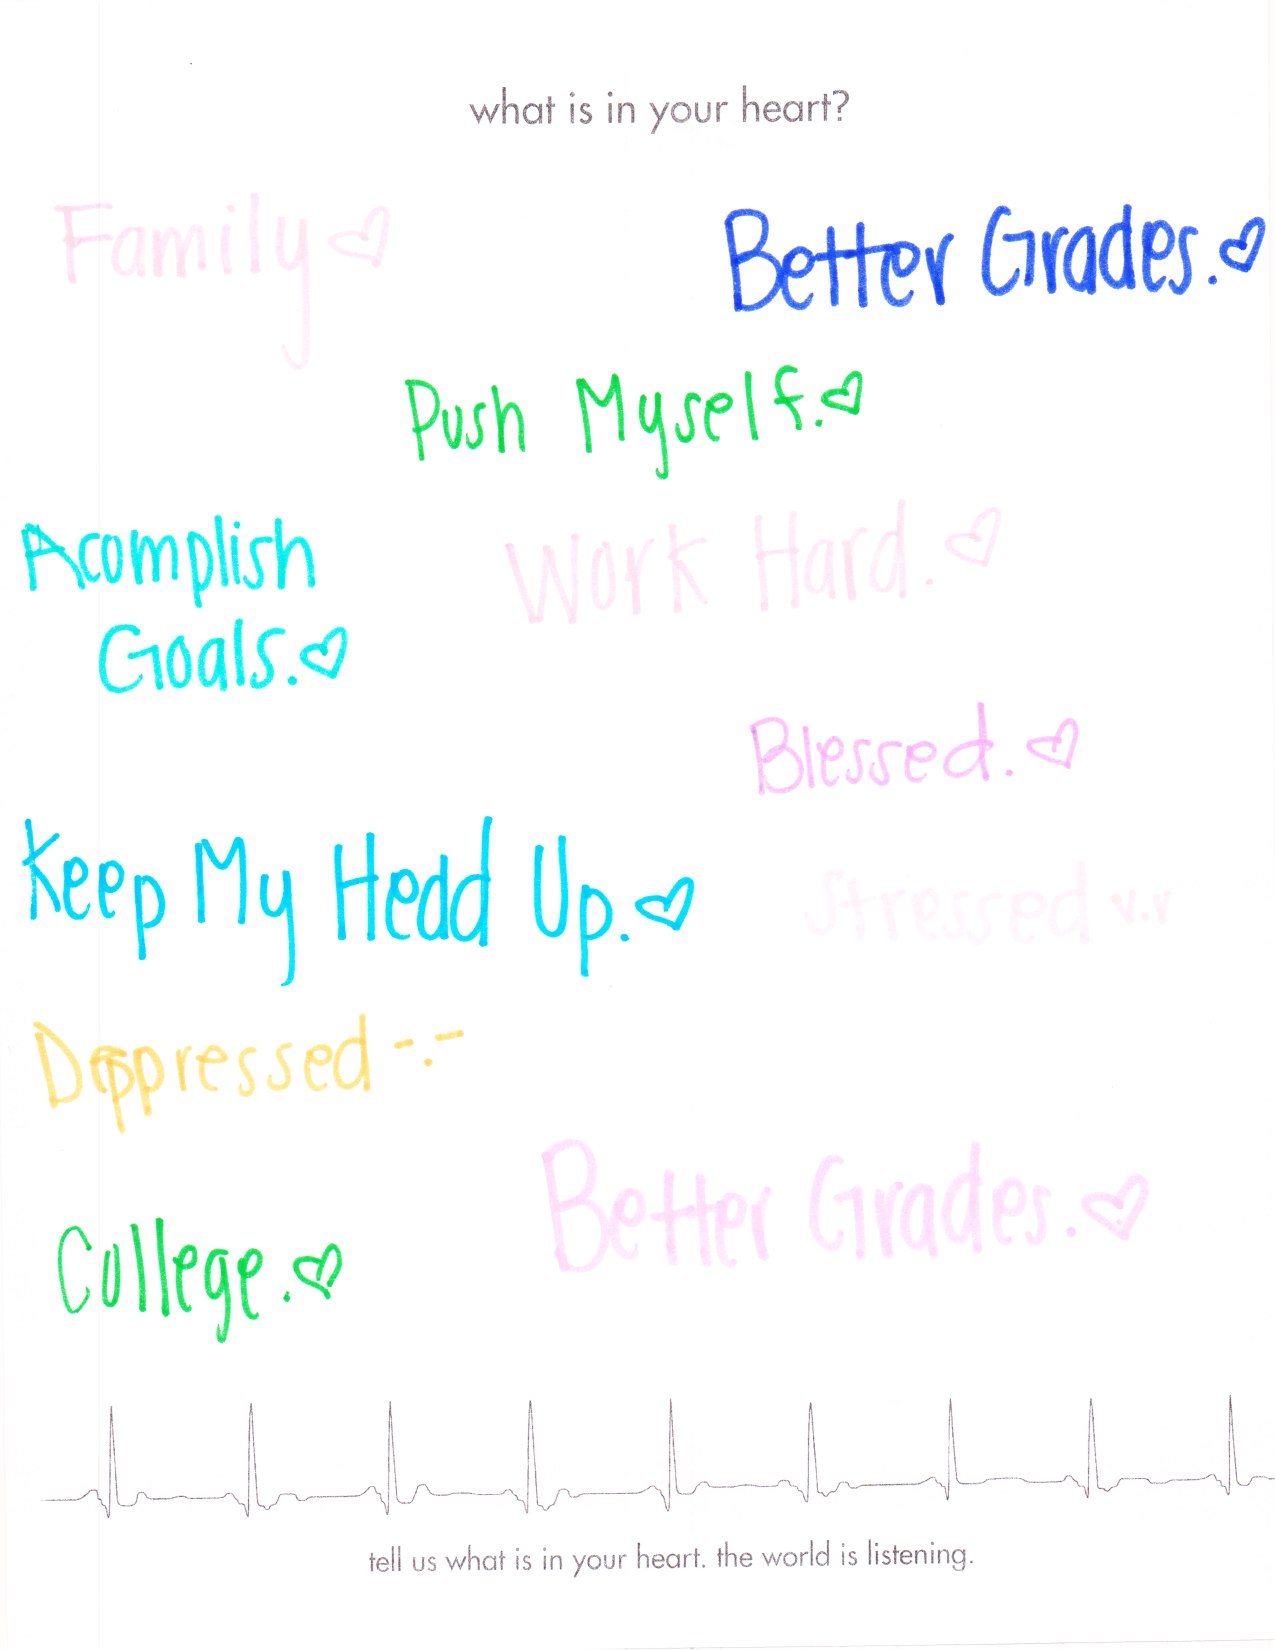 what is in your heart?
Family ♡
Better Grades. ♡
Push Myself. ♡
Acomplish
Goals. ♡
Work Hard. ♡
Blessed. ♡
Keep My Hedd Up. ♡
Stressed v.v
Deppressed -.-
Better Grades. ♡
College. ♡
tell us what is in your heart. the world is listening.